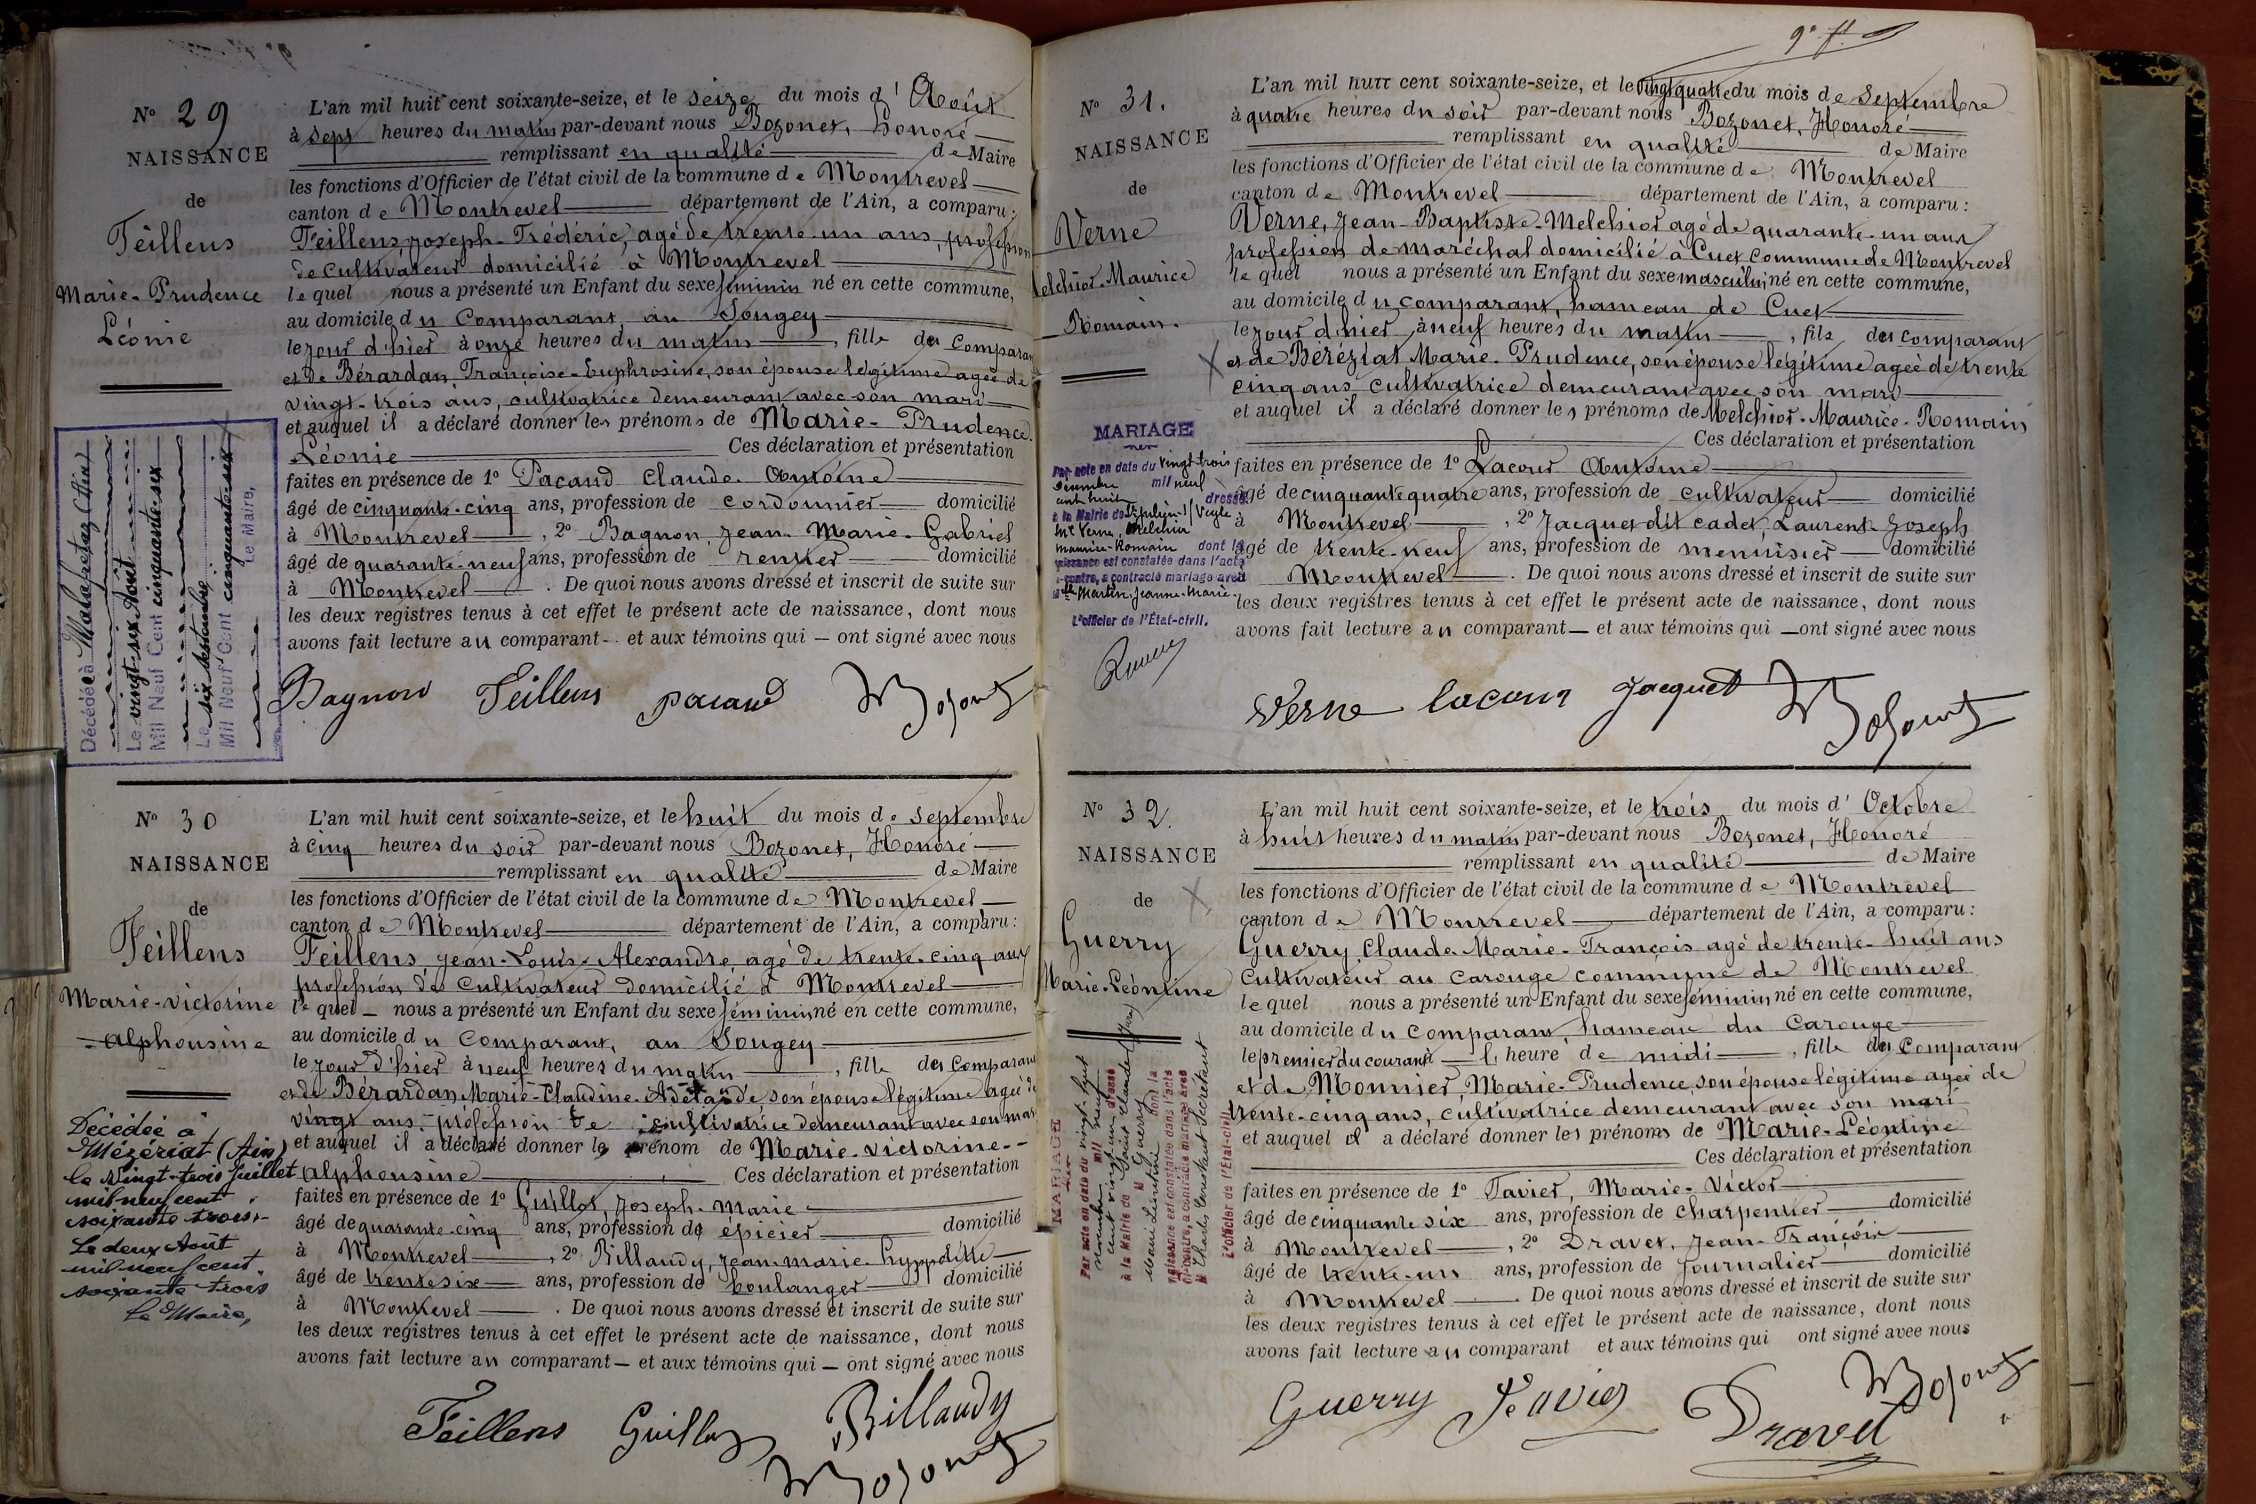 9e ft.
No 29
NAISSANCE
de
Feillens
Marie-Prudence
Léonie
L'an mil huit cent soixante-seize, et le seize du mois d'Août
à sept heures du matin par-devant nous Bozonet, Honoré
remplissant en qualité de Maire
les fonctions d'Officier de l'état civil de la commune de Montrevel
canton de Montrevel département de l'Ain, a comparu:
Feillens, Joseph-Frédéric, agé de trente-un ans, profession
de cultivateur domicilié à Montrevel
lequel nous a présenté un Enfant du sexe féminin né en cette commune,
au domicile du Comparant, au Sougey
le jour d'hier à onze heures du matin, fille des Comparant
et de Bérardan, Françoise-Euphrosine, son épouse légitime agée de
vingt-trois ans, cultivatrice demeurant avec son mari
et auquel il a déclaré donner les prénoms de Marie-Prudence
Léonie Ces déclaration et présentation
faites en présence de 1o Pacaud Claude-Antoine
âgé de cinquante-cinq ans, profession de cordonnier domicilié
à Montrevel, 2o Bagnon, Jean-Marie-Gabriel
âgé de quarante-neuf ans, profession de rentier domicilié
à Montrevel. De quoi nous avons dressé et inscrit de suite sur
les deux registres tenus à cet effet le présent acte de naissance, dont nous
avons fait lecture au comparant et aux témoins qui ont signé avec nous
Bagnon Feillens pacaud Bozonet
Décédée à Malafretaz (Ain)
Le vingt-six Août
Mil Neuf Cent cinquante-six
Le six septembre
Mil Neuf Cent cinquante-six
Le Maire,
No 30
NAISSANCE
de
Feillens
Marie-victorine
-alphonsine
L'an mil huit cent soixante-seize, et le huit du mois de septembre
à cinq heures du soir par-devant nous Bozonet, Honoré
remplissant en qualité de Maire
les fonctions d'Officier de l'état civil de la commune de Montrevel
canton de Montrevel département de l'Ain, a comparu:
Feillens, Jean-Louis-Alexandre, agé de trente-cinq ans
profession de cultivateur domicilié à Montrevel
lequel nous a présenté un Enfant du sexe féminin né en cette commune,
au domicile du Comparant, au Sougey
le jour d'hier à neuf heures du matin, fille des Comparant
et de Bérardan, Marie-Claudine-Adélaïde son épouse légitime agée de
vingt ans, profession de cultivatrice demeurant avec son mari
et auquel il a déclaré donner les prénom de Marie-victorine-
alphonsine Ces déclaration et présentation
faites en présence de 1o Guillot, Joseph-Marie
âgé de quarante-cinq ans, profession de épicier domicilié
à Montrevel, 2o Billaudy, Jean-marie-hyppolitte
âgé de trente six ans, profession de boulanger domicilié
à Montrevel. De quoi nous avons dressé et inscrit de suite sur
les deux registres tenus à cet effet le présent acte de naissance, dont nous
avons fait lecture au comparant et aux témoins qui ont signé avec nous
Feillens Guillot Billaudy
Bozonet
Décédée à
Mézériat (Ain)
le Vingt-trois Juillet
mil neuf cent
soixante trois.-
Le deux Août
mil neuf cent
soixante trois
Le Maire,
No 31.
NAISSANCE
de
Verne
Melchior-Maurice
Romain.
L'an mil huit cent soixante-seize, et le vingt quatre du mois de septembre
à quatre heures du soir par-devant nous Bozonet, Honoré
remplissant en qualité de Maire
les fonctions d'Officier de l'état civil de la commune de Montrevel
canton de Montrevel département de l'Ain, a comparu:
Verne, Jean-Baptiste-Melchior agé de quarante-un ans
profession de maréchal domicilié à Cuet Commune de Montrevel
lequel nous a présenté un Enfant du sexe masculin né en cette commune,
au domicile du comparant, hameau de Cuet
le jour d'hier, à neuf heures du matin, fils des comparant
et de Béréziat Marie-Prudence, son épouse légitime agée de trente
cinq ans cultivatrice demeurant avec son mari
et auquel il a déclaré donner les prénoms de Melchior-Maurice-Romain
Ces déclaration et présentation
faites en présence de 1o Lacour Antoine
âgé de cinquante quatre ans, profession de cultivateur domicilié
à Montrevel, 2o Jacquet dit cadet, Laurent-Joseph
âgé de trente-neuf ans, profession de menuisier domicilié
à Montrevel. De quoi nous avons dressé et inscrit de suite sur
les deux registres tenus à cet effet le présent acte de naissance, dont nous
avons fait lecture au comparant et aux témoins qui ont signé avec nous
Verne lacour Jacquet Bozonet
MARIAGE
Par acte en date du vingt trois
Décembre mil neuf
cent huit dressé
à la Mairie de St Julien-s/Veyle
Mr Verne, Melchior
Maurice-Romain dont la
naissance est constatée dans l'acte
ci-contre, a contracté mariage avec
Mlle Martin, Jeanne-Marie.
L'officier de l'État-civil.
No 32.
NAISSANCE
de
Guerry
Marie-Léontine
L'an mil huit cent soixante-seize, et le trois du mois d'Octobre
à huit heures du matin par-devant nous Bozonet, Honoré
remplissant en qualité de Maire
les fonctions d'Officier de l'état civil de la commune de Montrevel
canton de Montrevel département de l'Ain, a comparu:
Guerry, Claude-Marie-François agé de trente-huit ans
Cultivateur au Carouge commune de Montrevel
lequel nous a présenté un Enfant du sexe féminin né en cette commune,
au domicile du Comparant, hameau du Carouge
le premier du courant à l'heure de midi, fille des Comparant
et de Monnier, Marie-Prudence, son épouse légitime agée de
trente-cinq ans, cultivatrice demeurant avec son mari
et auquel il a déclaré donner les prénoms de Marie-Léontine
Ces déclaration et présentation
faites en présence de 1o Tavier, Marie-Victor
âgé de cinquante six ans, profession de charpentier domicilié
à Montrevel, 2o Dravet, Jean-François
âgé de trente-un ans, profession de Journalier domicilié
à Montrevel. De quoi nous avons dressé et inscrit de suite sur
les deux registres tenus à cet effet le présent acte de naissance, dont nous
avons fait lecture au comparant et aux témoins qui ont signé avec nous
Guerry Tavier Dravet Bozonet
MARIAGE
Par acte en date du vingt-huit
novembre mil neuf
cent vingt-un dressé
à la Mairie de Saint Claude (Jura)
M Guerry
Marie Léontine dont la
naissance est constatée dans l'acte
ci-contre, a contracté mariage avec
M Charles Constant Secrétant
L'officier de l'État-civil